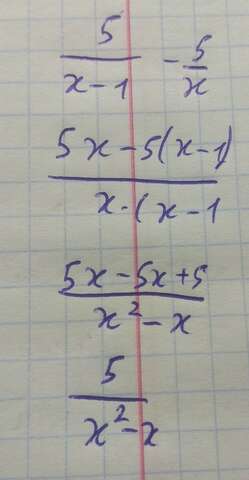 5/(x-1) - 5/x
(5x-5(x-1))/(x·(x-1)
(5x-5x+5)/(x²-x)
5/(x²-x)